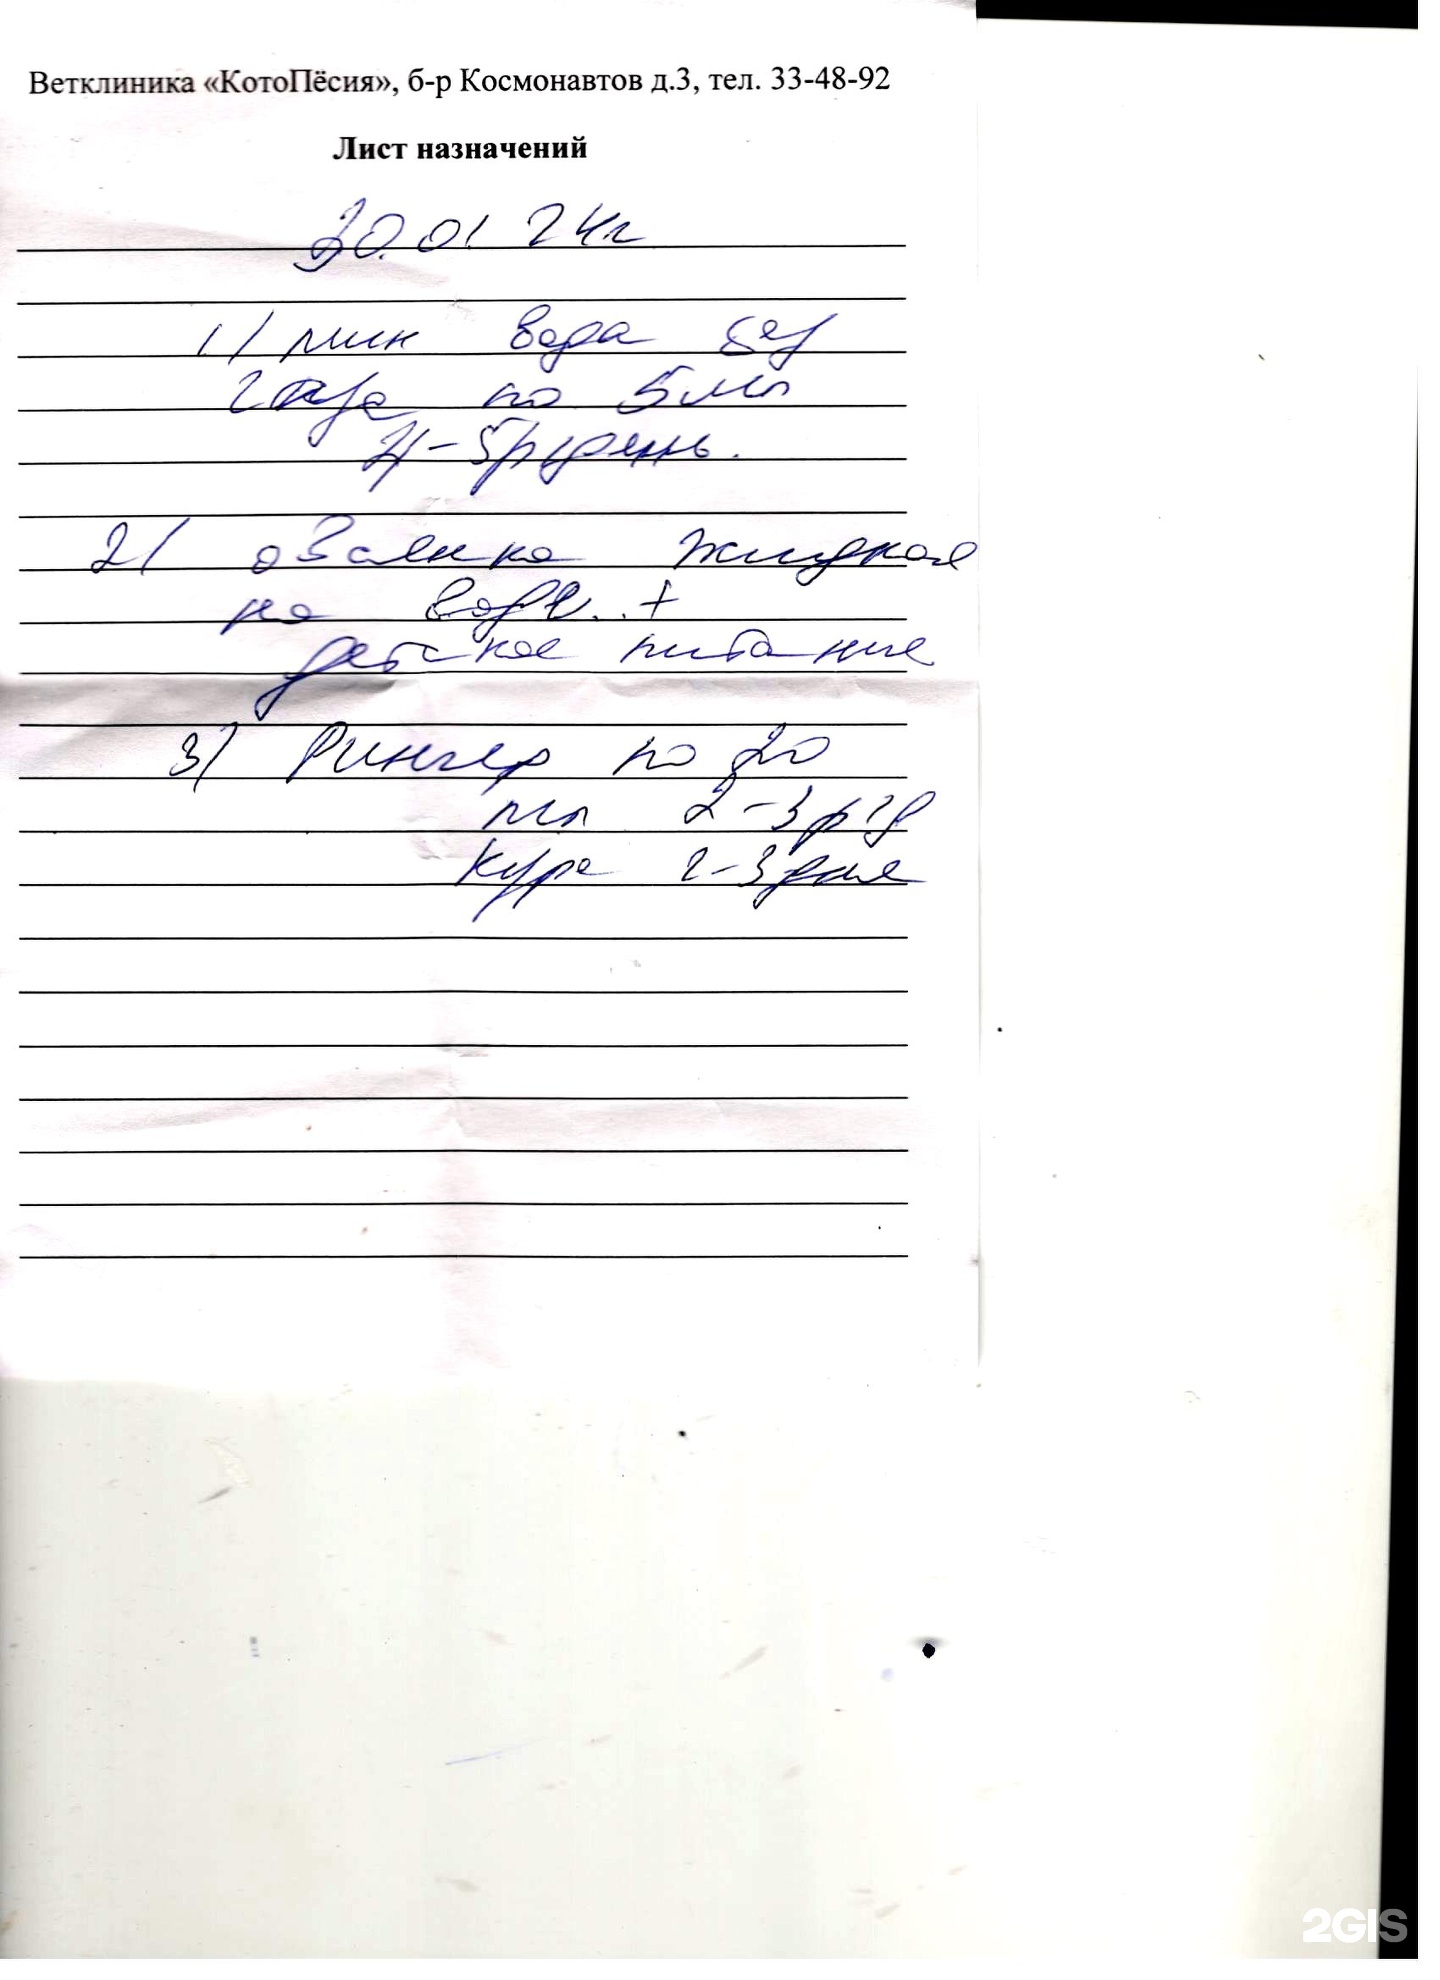 Ветклиника «КотоПёсия», б-р Космонавтов д.3, тел. 33-48-92
Лист назначений
30.01.24г
1) мин вода без
газа по 5 мл
4-5 р/день.
2) овсянка жидкая
на воде.. +
детское питание
3) Рингер по 20
мл 2-3 р/д
курс 2-3 дня
2GIS